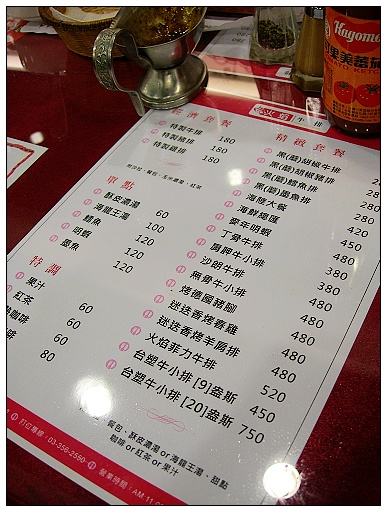 Kagome
可果美蕃茄
TOMATO KETCHUP
火焰牛排
經濟套餐
特製牛排 180
特製豬排
特製雞排 180
附沙拉、餐包、玉米濃湯、紅茶
單點
酥皮濃湯 60
海龍王湯 100
鱈魚 120
明蝦 120
墨魚 120
特調
果汁 60
紅茶 60
咖啡 60
80
精緻套餐
黑(蘑)胡椒牛排
黑(蘑)胡椒豬排
黑(蘑)鱈魚排
黑(蘑)墨魚排 280
海陸大餐 420
海鮮總匯 450
麥年明蝦 480
丁骨牛排 380
匈牙利牛小排 380
沙朗牛排 480
無骨牛小排 480
烤德國豬腳 480
迷迭香烤春雞 480
迷迭香烤羊肩排 480
火焰菲力牛排 520
台塑牛小排 [9]盎斯 450
台塑牛小排 [20]盎斯 750
餐包、酥皮濃湯 or 海龍王湯、甜點
咖啡 or 紅茶 or 果汁
訂位專線：03-356-2590 營業時間：AM 11:0